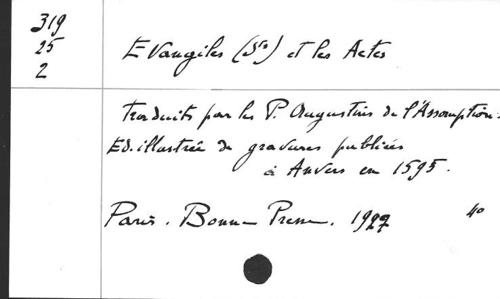 319
25
2
Evangiles (Sts) et les Actes
traduits par les P. Augustins de l'Assomption.
Ed. illustrée de gravures publiées
à Anvers en 1595.
Paris. Bonne Presse. 1927 4o